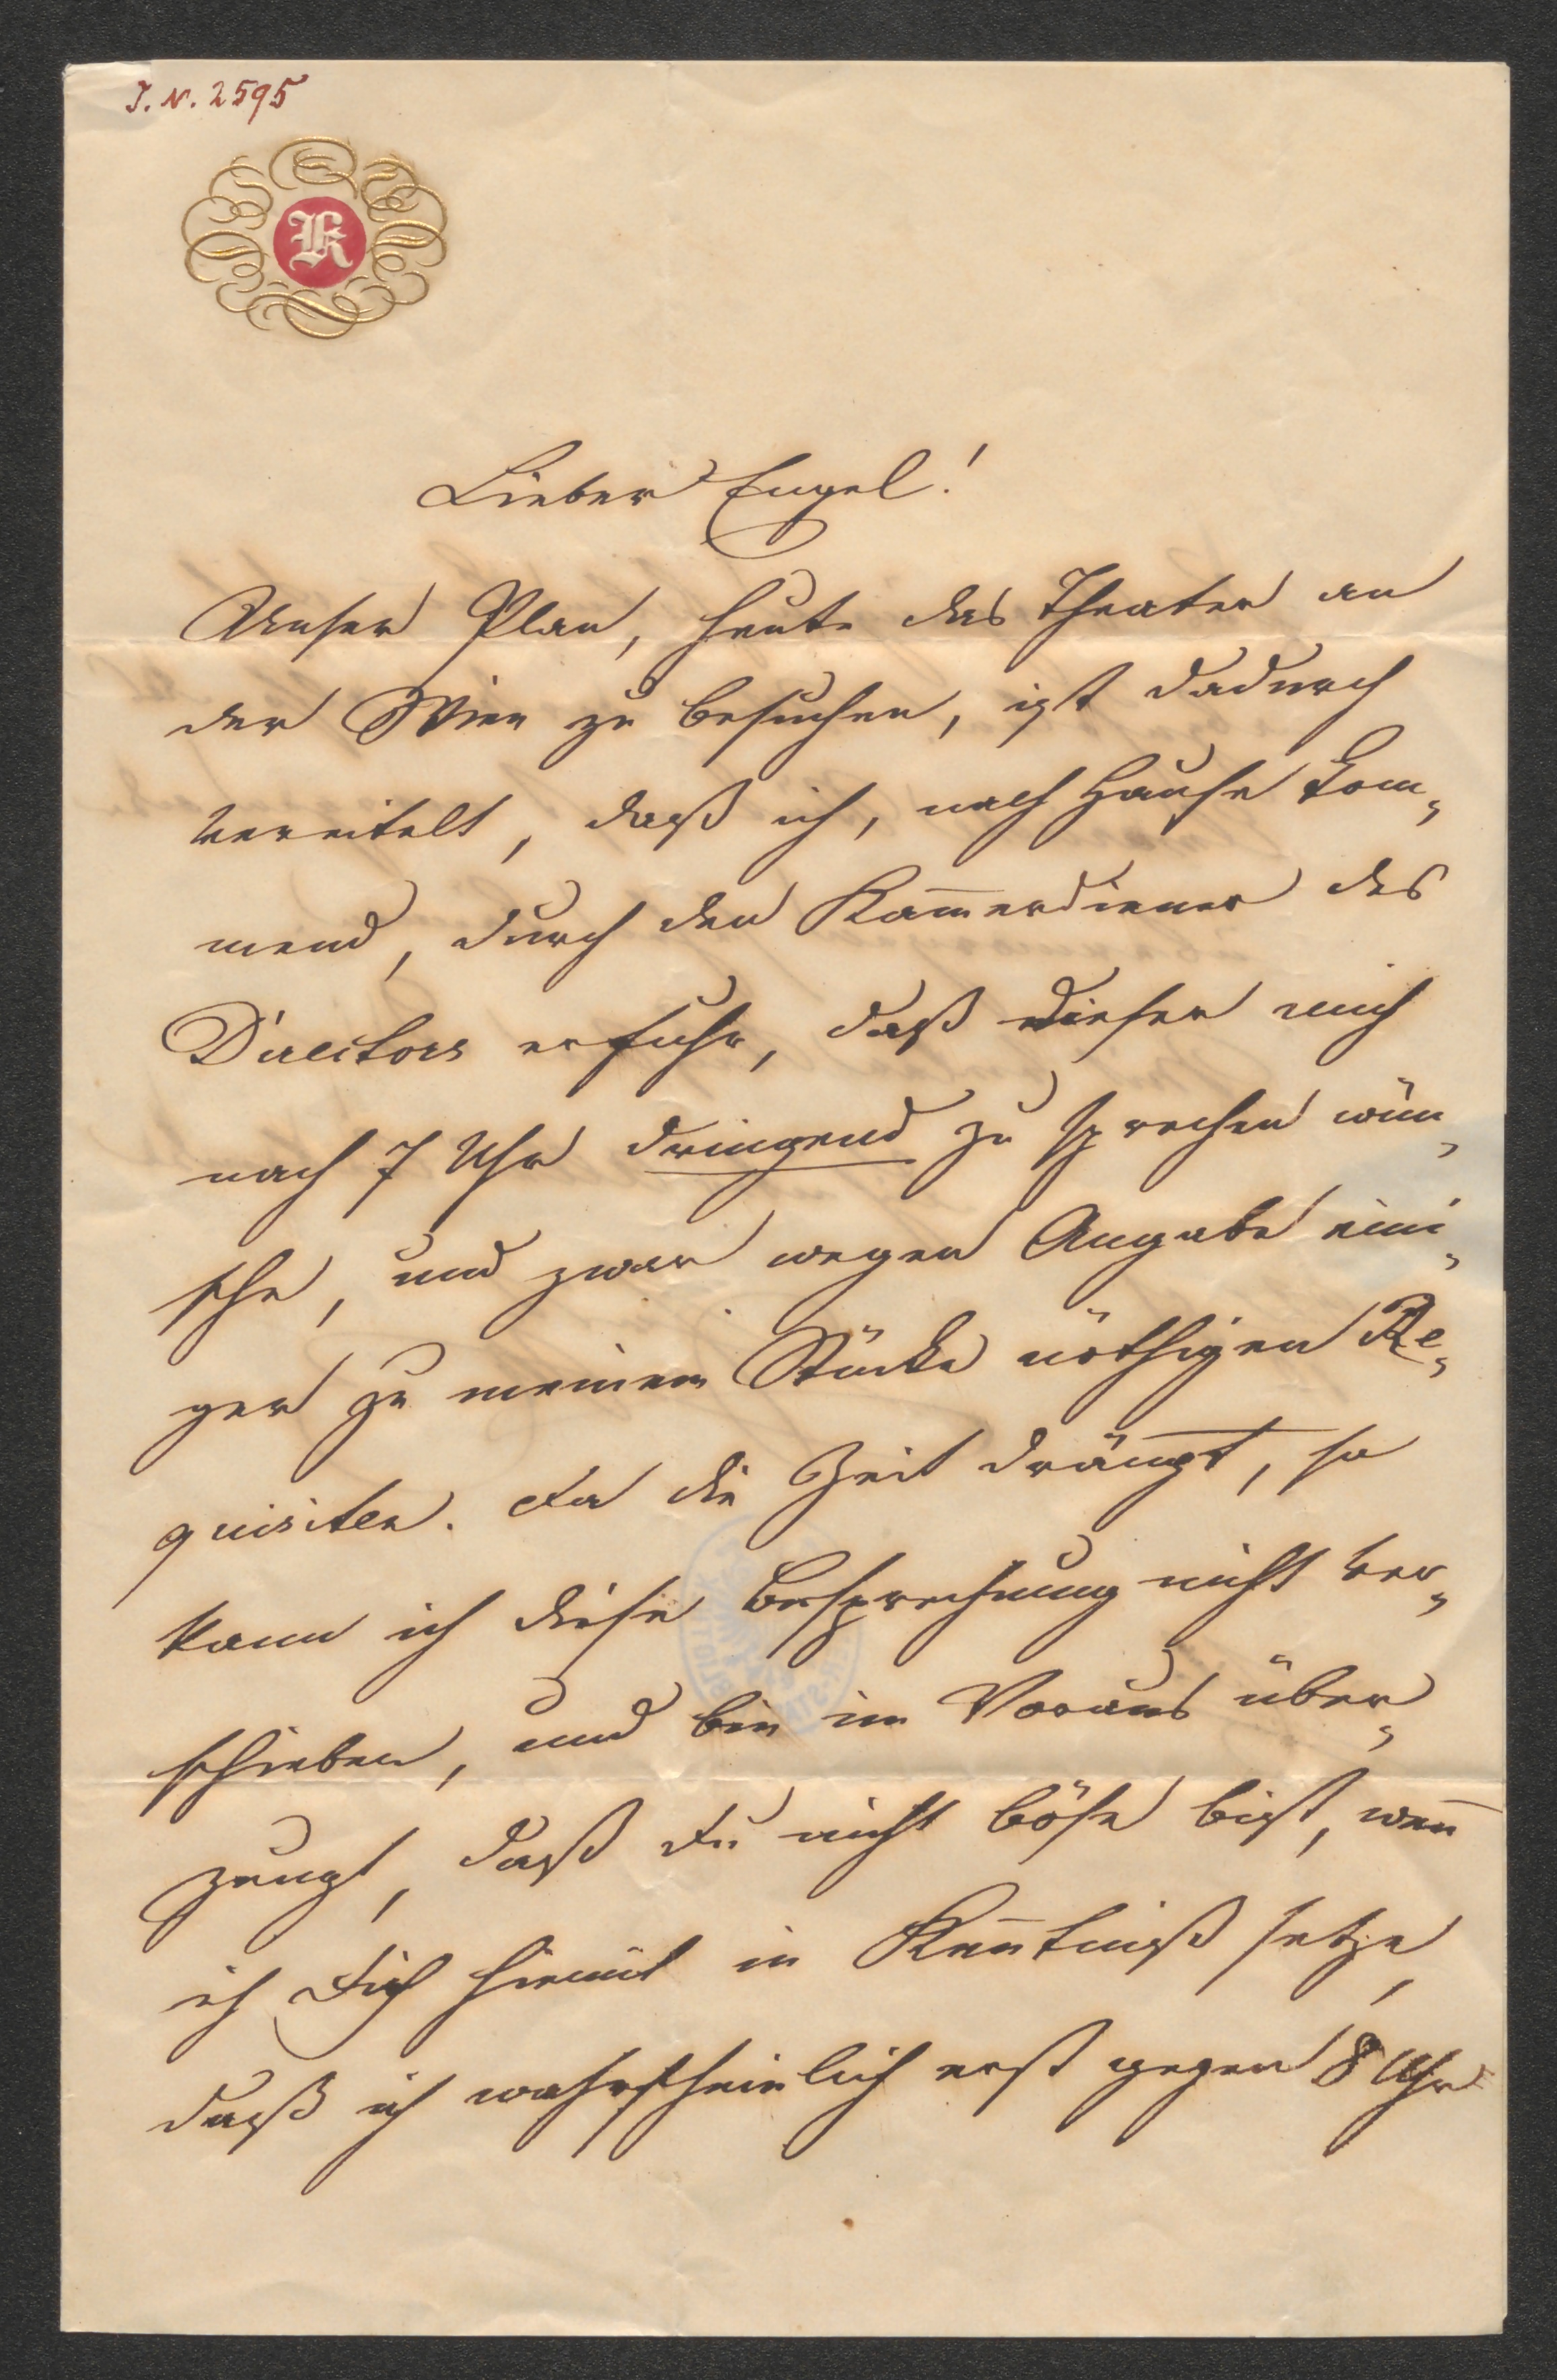 J. N. 2595
K
Lieber Engel!
Unser Plan, heute das Theater an
der Wien zu besuchen, ist dadurch
vereitelt, daß ich, nach Hause kom„
mend, durch den Kam̄erdiener des
Directors erfuhr, daß dieser mich
nach 7 Uhr dringend zu sprechen wün„
sche, und zwar wegen Angabe eini„
ger zu meinem Stücke nöthigen Re„
quisiten. Da die Zeit drängt, so
kann ich diese Besprechung nicht ver„
schieben, und bin im Voraus über„
zeugt, daß Du nicht böse bist, wen̄
ich Dich hiemit in Ken̄tniß setze,
daß ich wahrscheinlich erst gegen 8 Uhr